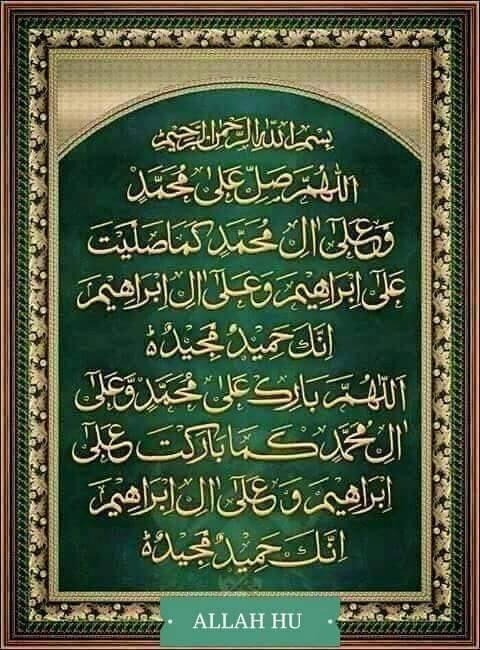 بسم الله الرحمن الرحيم
اَللّٰهُمَّ صَلِّ عَلٰی مُحَمَّدٍ
وَّعَلٰٓی اٰلِ مُحَمَّدٍ كَمَا صَلَّیْتَ
عَلٰٓی اِبْرَاهِیْمَ وَعَلٰٓی اٰلِ اِبْرَاهِیْمَ
اِنَّكَ حَمِیْدٌ مَّجِیْدٌ ؕ
اَللّٰهُمَّ بَارِكْ عَلٰی مُحَمَّدٍ وَّعَلٰٓی
اٰلِ مُحَمَّدٍ كَمَا بَارَكْتَ عَلٰٓی
اِبْرَاهِیْمَ وَ عَلٰٓی اٰلِ اِبْرَاهِیْمَ
اِنَّكَ حَمِیْدٌ مَّجِیْدٌ ؕ
ALLAH HU